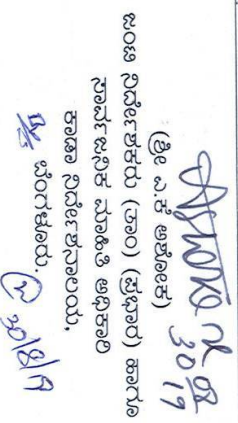 Ashoka
30
08
19
(ಶ್ರೀ ಎ.ಕೆ ಅಶೋಕ)
ಜಂಟಿ ನಿರ್ದೇಶಕರು (ತಾಂ) (ಪ್ರಭಾರ) ಹಾಗೂ
ಸಾರ್ವಜನಿಕ ಮಾಹಿತಿ ಅಧಿಕಾರಿ
ಕಾಡಾ ನಿರ್ದೇಶನಾಲಯ,
ಬೆಂಗಳೂರು.
30/8/19